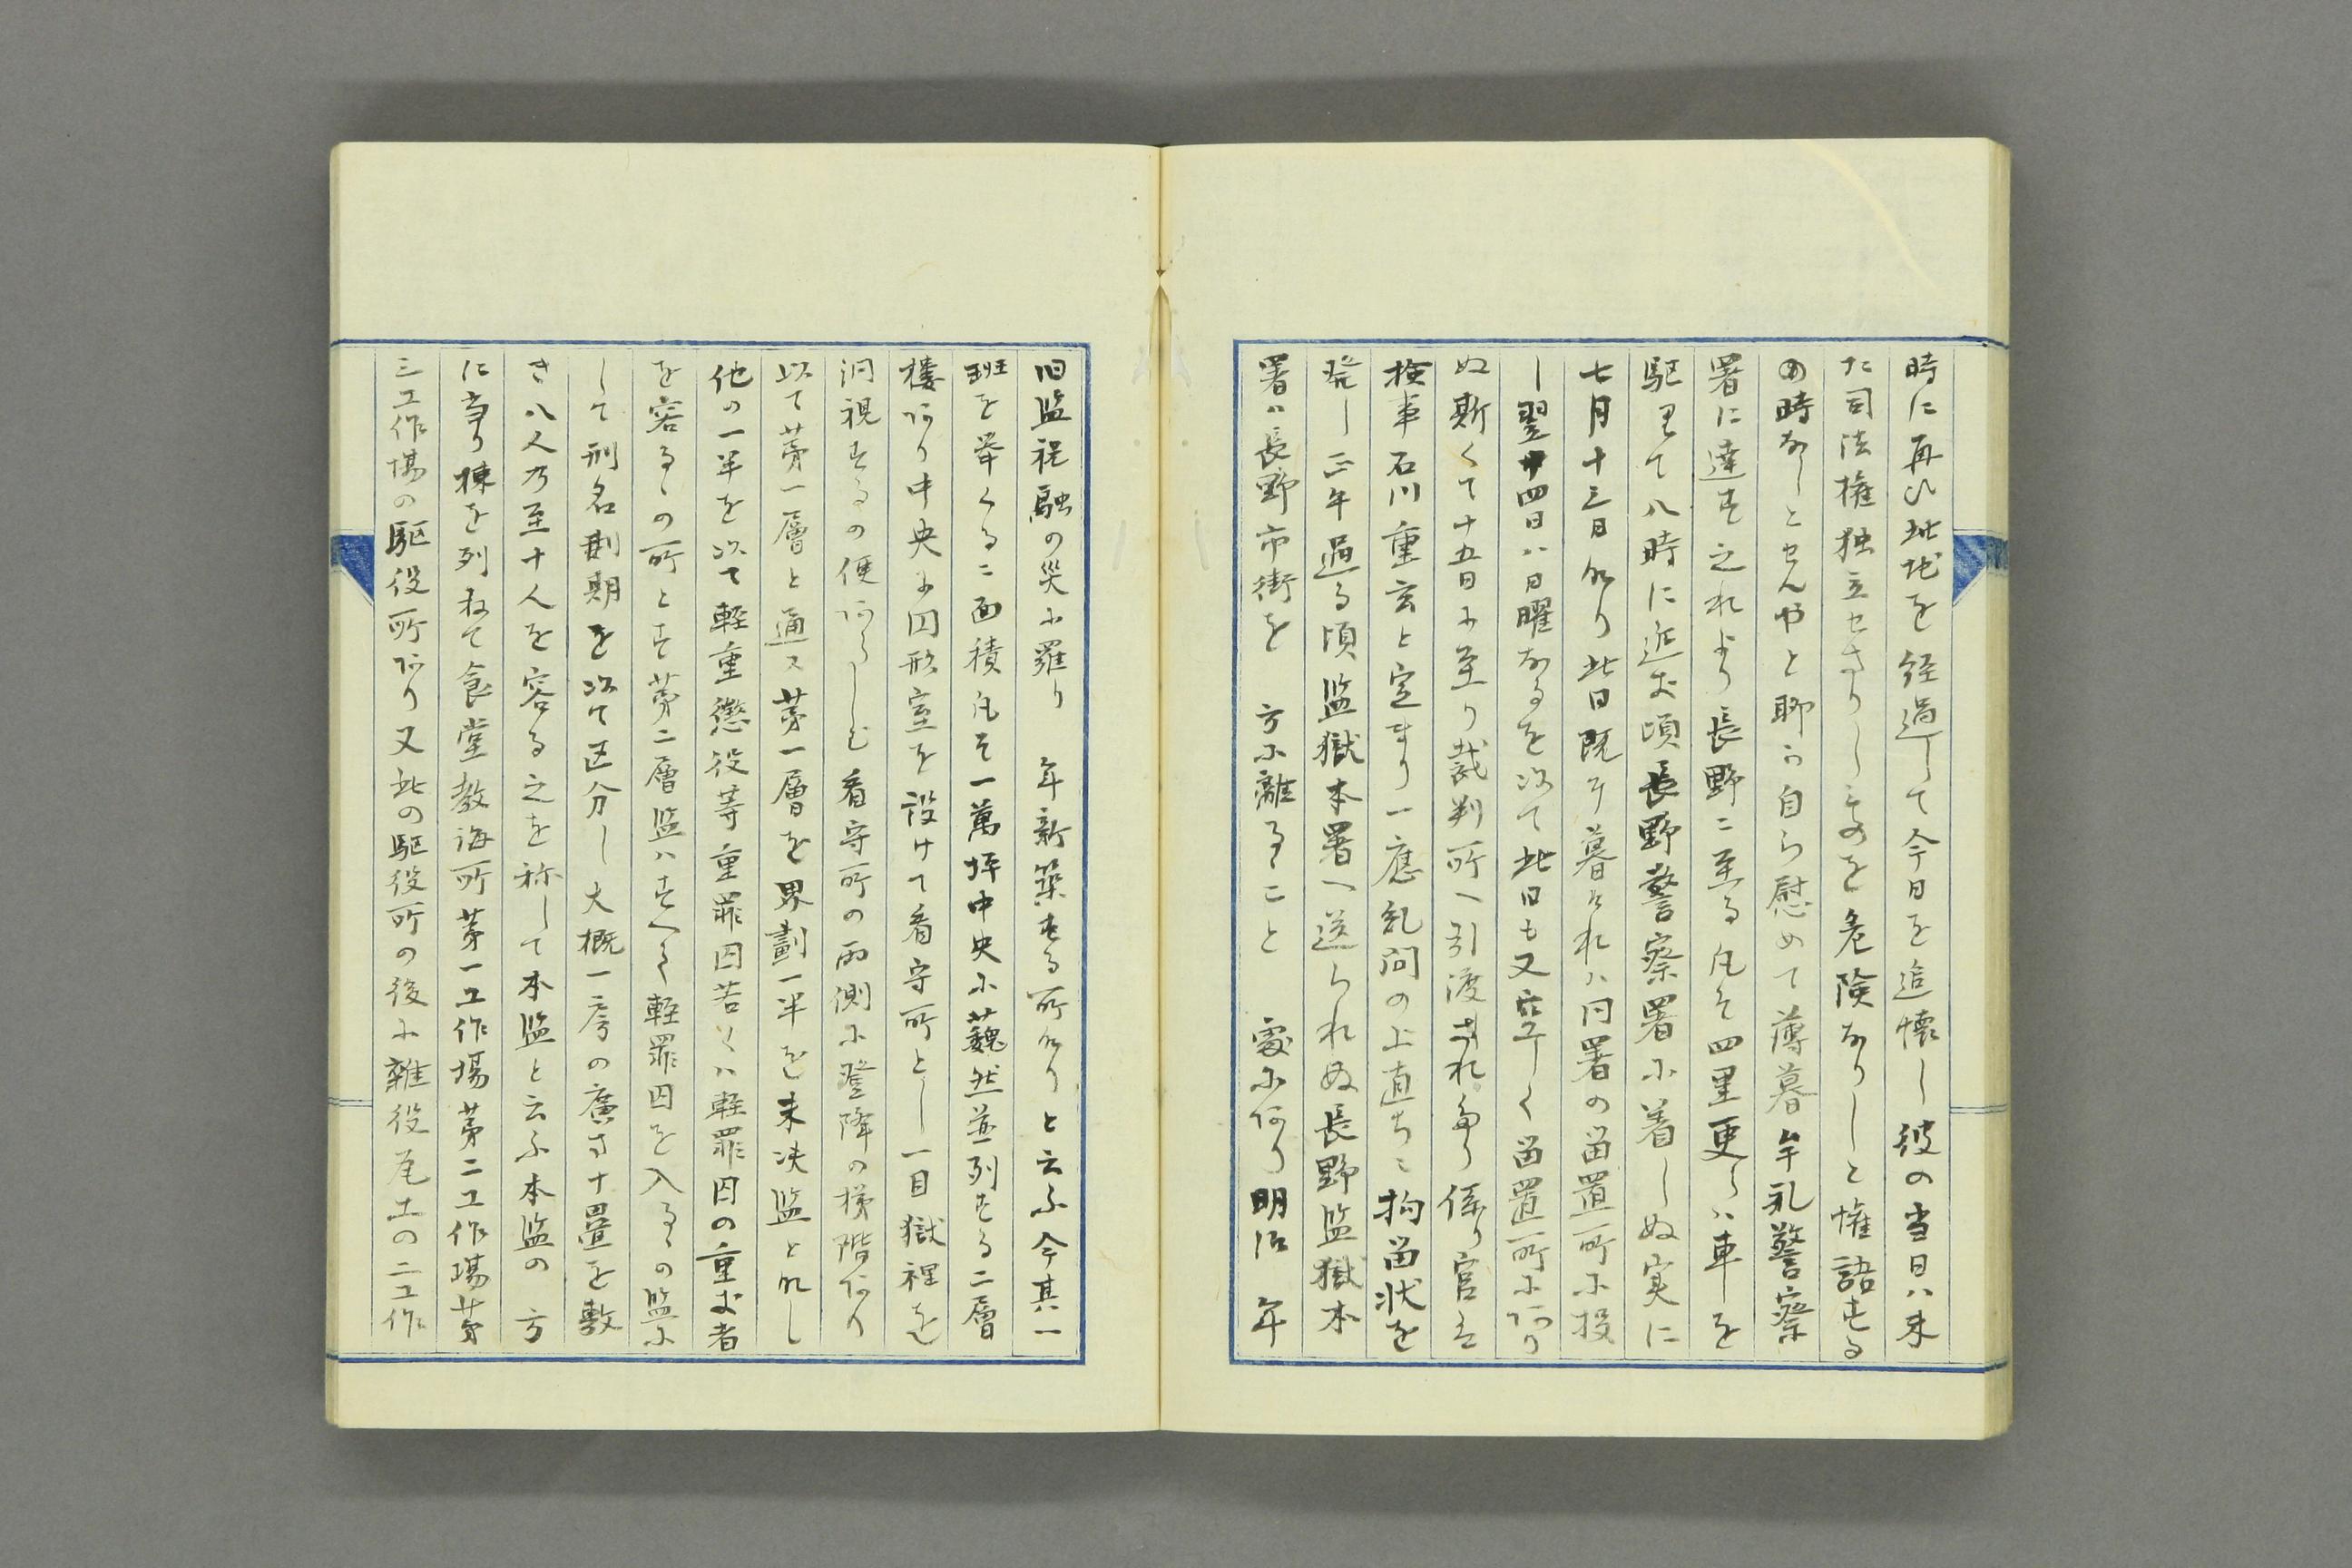 時に再ひ此地を経過して今日を追懐し彼の当日ハ未
た司法権独立せさりしものを危険なりしと懽語する
の時なしとせんやと聊か自ら慰めて薄暮牟礼警察
署に達す之れより長野ニ至る凡そ四里更らハ車を
駆りて八時に近き頃長野警察署に着しぬ実に
七月十三日なり此日既ニ暮けれハ同署の留置所に投
し翌十四日ハ日曜なるを以て此日も又空しく留置所にあり
ぬ斯くて十五日に至り裁判所へ引渡され係り官ハ
検事石川重玄と定まり一應糺問の上直ちニ拘留状を
発し正午過る頃監獄本署へ送られぬ長野監獄本
署ハ長野市街を　方に離るゝこと　處に在り明治　年
旧監祝融の災に罹り　年新築せる所なりと云ふ今其一
班を挙くるニ面積凡そ一萬坪中央に巍然並列せる二層
楼あり中央に円形室を設けて看守所とし一目獄裡を
洞視するの便あらしむ看守所の両側に登降の梯階あり
以て第一層と通ス第一層を界劃一半を未决監となし
他の一半を以て軽重懲役等重罪囚若くハ軽罪囚の重き者
を容るゝの所とす第二層監ハすへて軽罪囚を入るゝの監に
して刑名刑期を以て区分し大概一房の廣サ十畳を敷
き八人乃至十人を容る之を称して本監と云ふ本監の　方
に当り棟を列ねて食堂教誨所第一工作場第二工作場第
三工作場の駆役所あり又此の駆役所の後に雑役瓦土の二工作